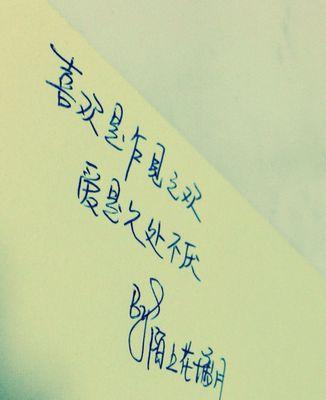 喜欢是乍见之欢
爱是久处不厌
By 陌上花